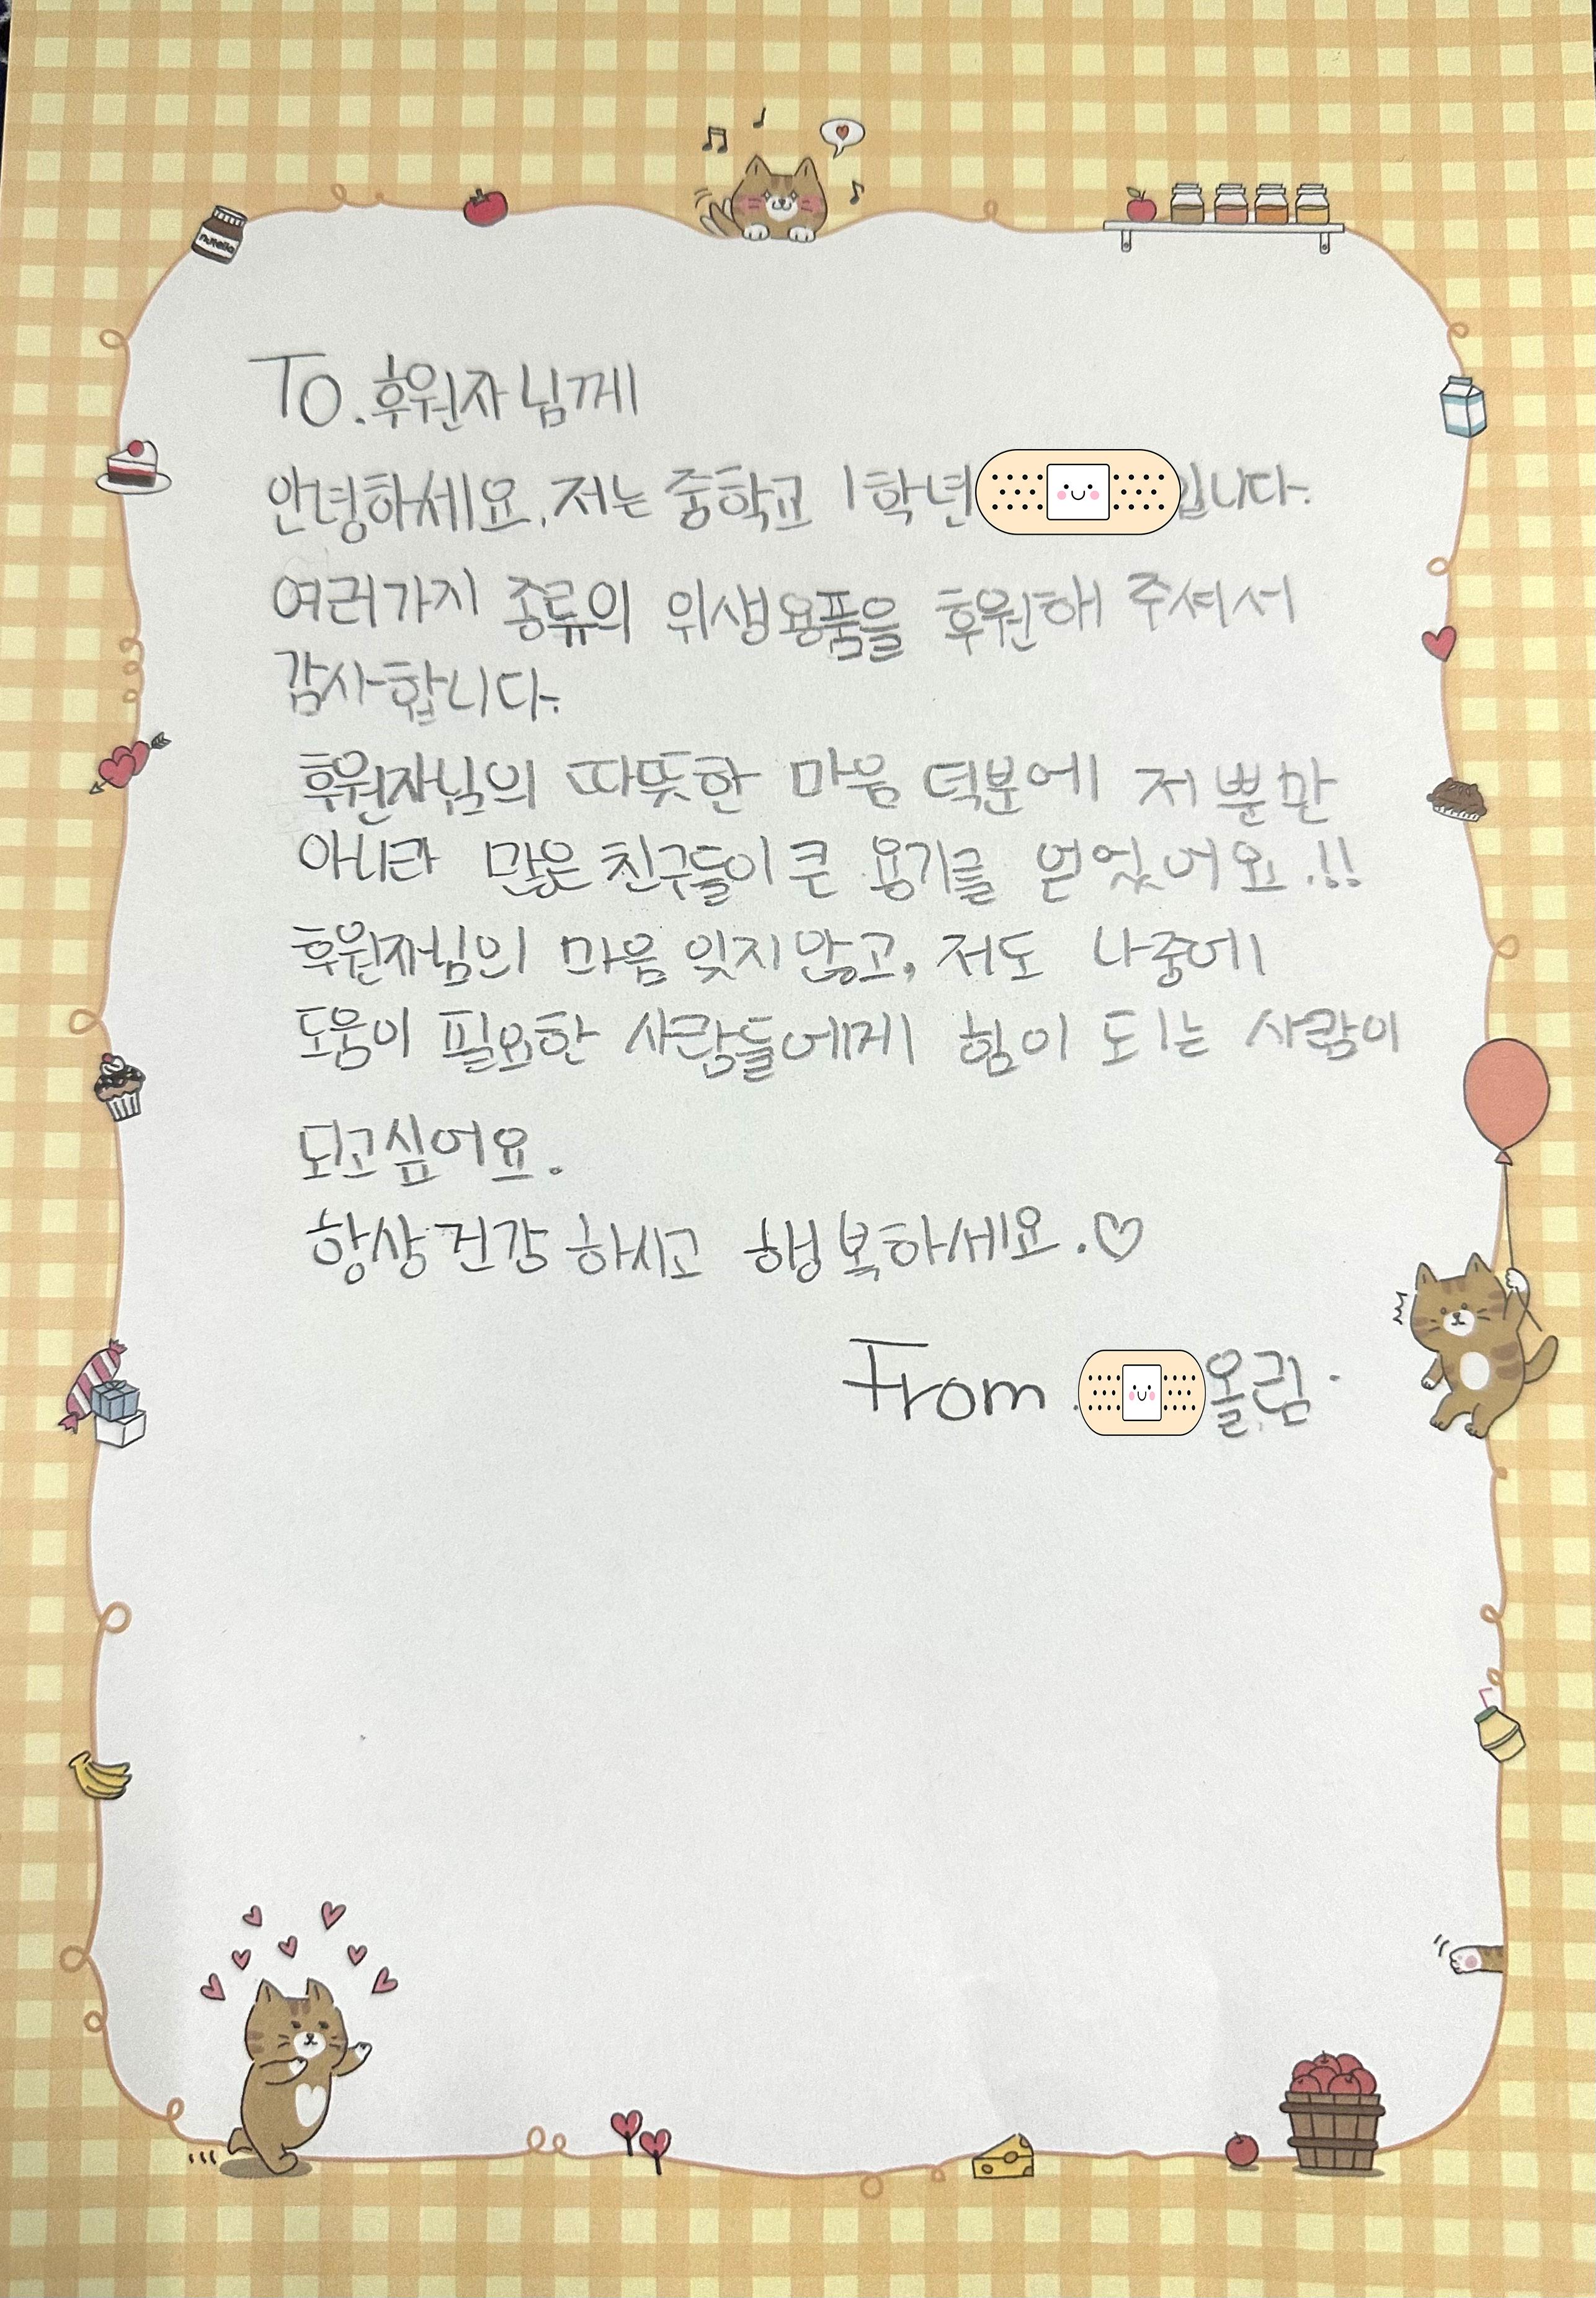 nutella
To. 후원자님께
안녕하세요. 저는 중학교 1학년 입니다.
여러가지 종류의 위생용품을 후원해 주셔서
감사합니다.
후원자님의 따뜻한 마음 덕분에 저 뿐만
아니라 많은 친구들이 큰 용기를 얻었어요.!!
후원자님의 마음 잊지 않고, 저도 나중에
도움이 필요한 사람들에게 힘이 되는 사람이
되고싶어요.
항상 건강 하시고 행복하세요.♡
From. 올림.